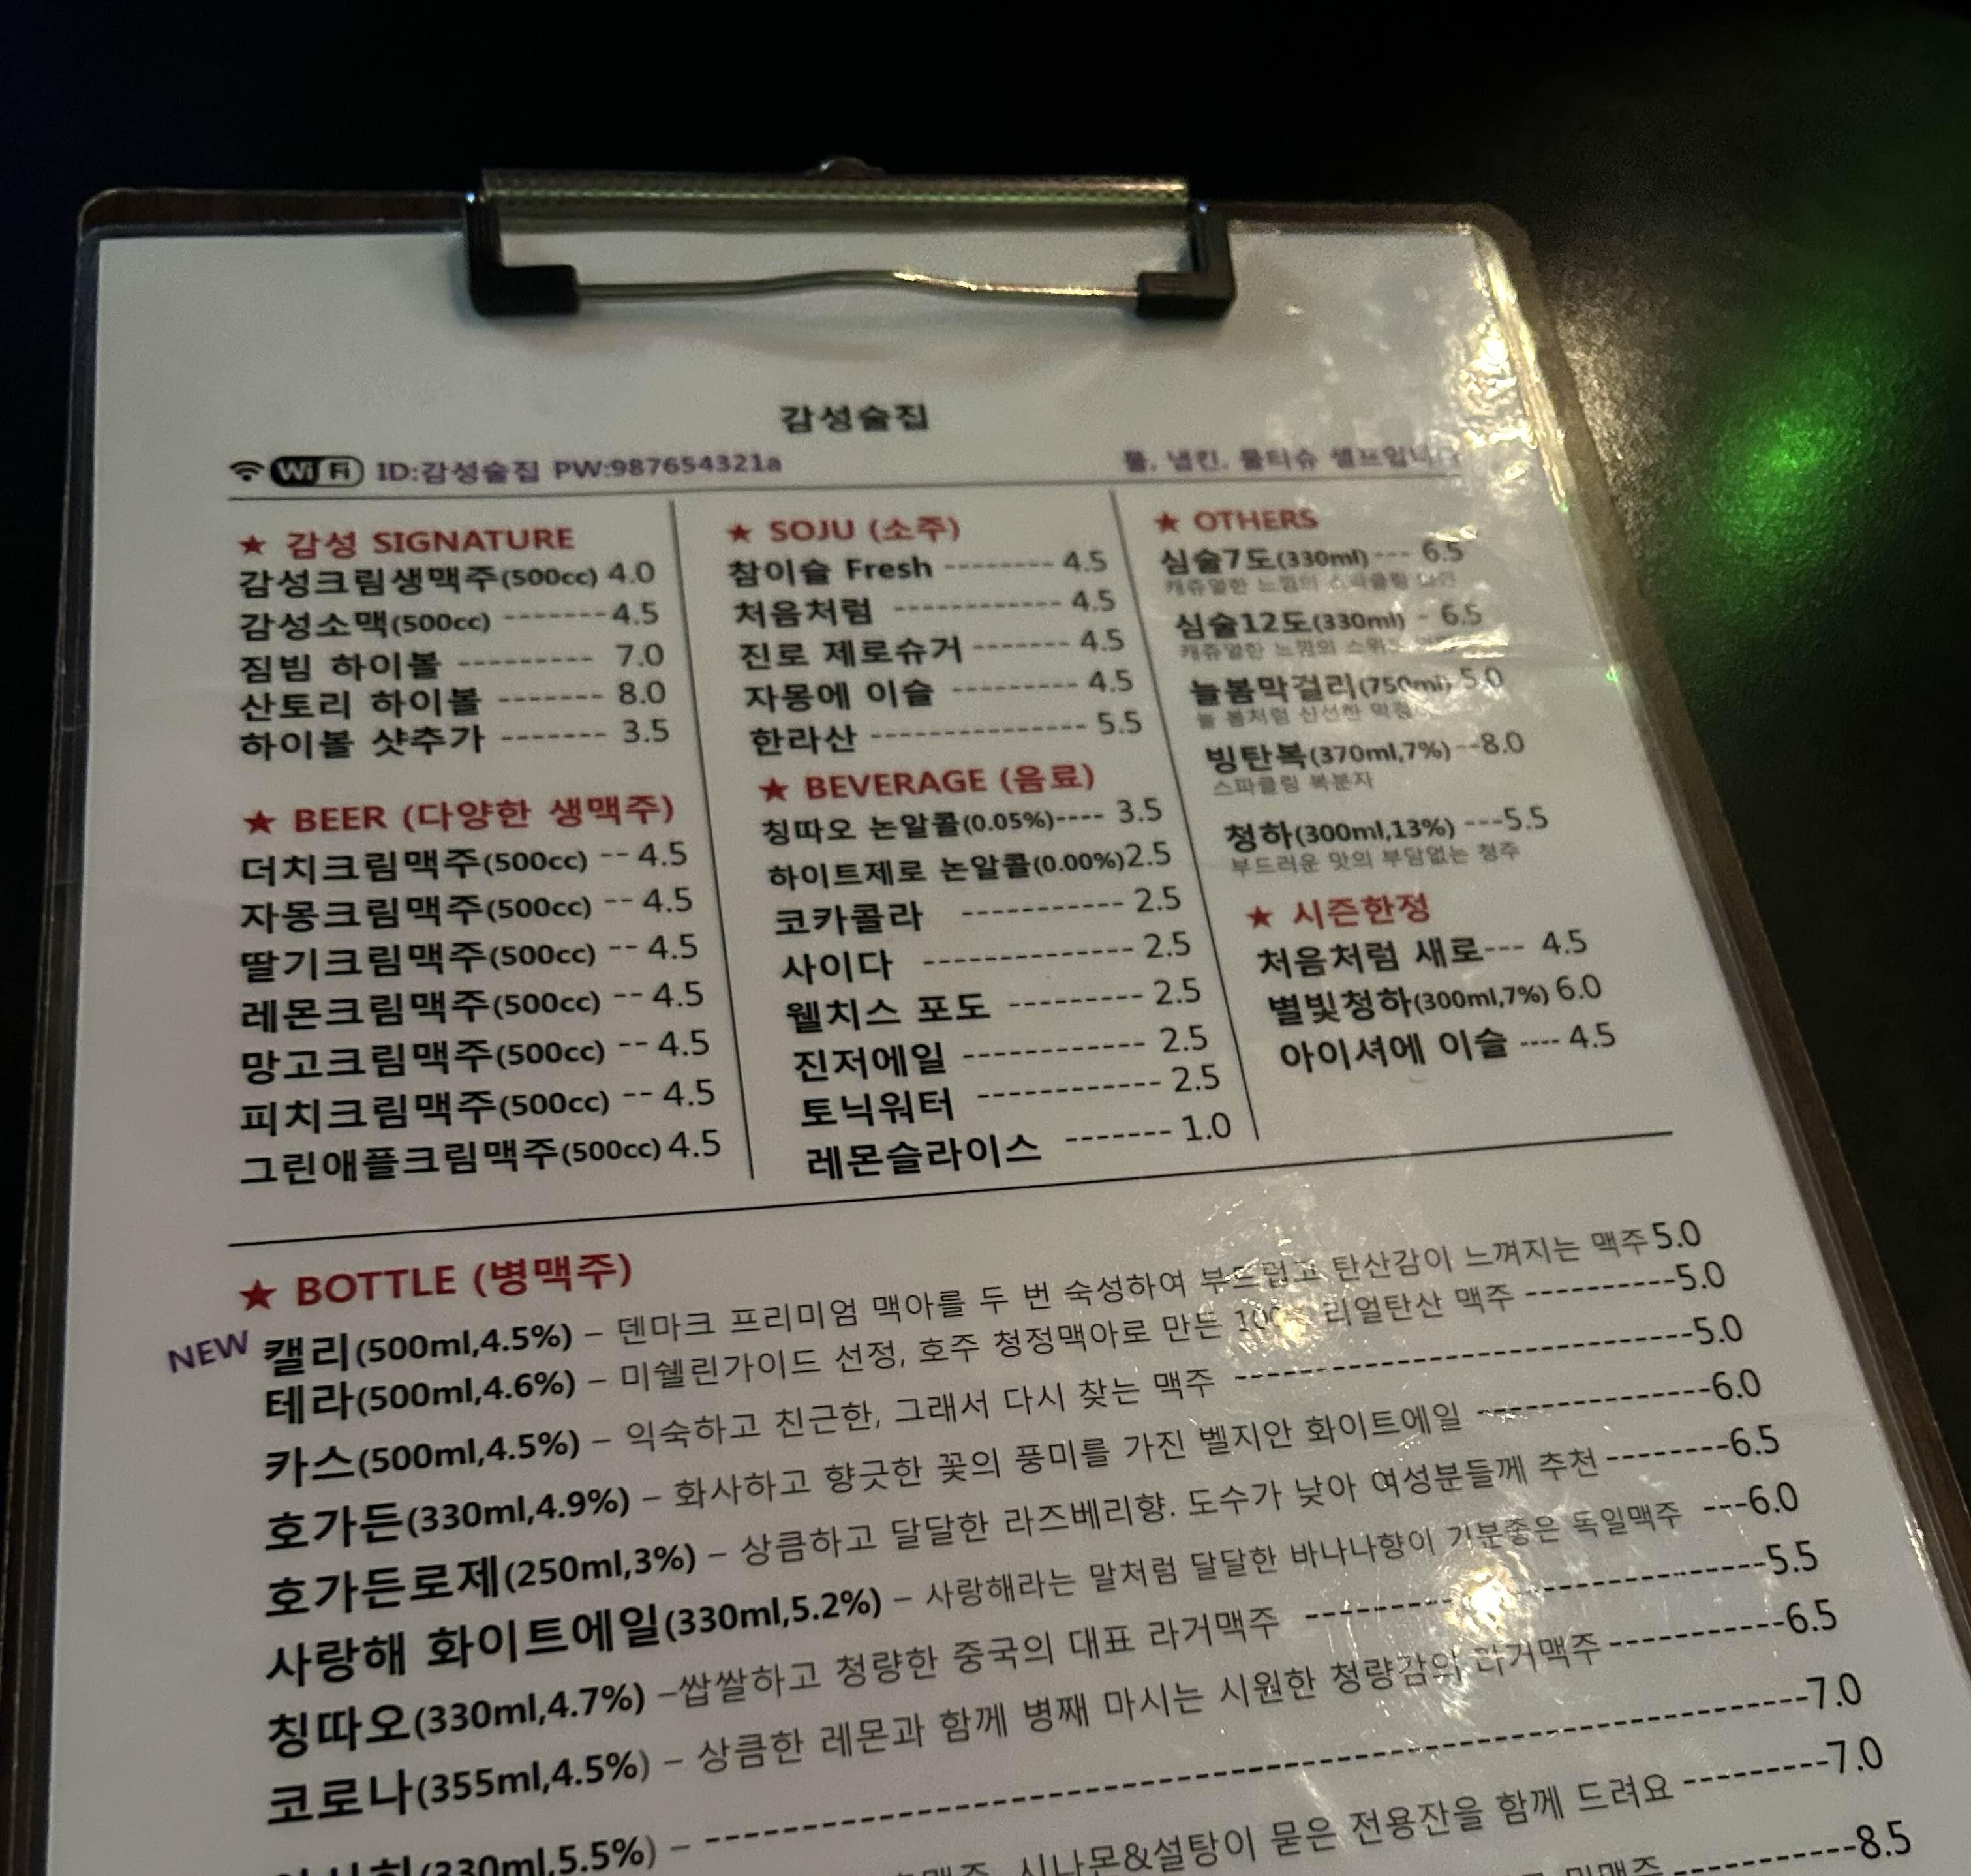 감성술집
WiFi ID:감성술집 PW:987654321a
물, 냅킨, 물티슈 셀프입니다
★ 감성 SIGNATURE
감성크림생맥주(500cc) 4.0
감성소맥(500cc) -------4.5
짐빔 하이볼 --------- 7.0
산토리 하이볼 ------- 8.0
하이볼 샷추가 ------- 3.5
★ BEER (다양한 생맥주)
더치크림맥주(500cc) -- 4.5
자몽크림맥주(500cc) -- 4.5
딸기크림맥주(500cc) -- 4.5
레몬크림맥주(500cc) -- 4.5
망고크림맥주(500cc) -- 4.5
피치크림맥주(500cc) -- 4.5
그린애플크림맥주(500cc) 4.5
★ SOJU (소주)
참이슬 Fresh -------- 4.5
처음처럼 ------------ 4.5
진로 제로슈거 ------- 4.5
자몽에 이슬 --------- 4.5
한라산 --------------- 5.5
★ BEVERAGE (음료)
칭따오 논알콜(0.05%)---- 3.5
하이트제로 논알콜(0.00%)2.5
코카콜라 ------------ 2.5
사이다 --------------- 2.5
웰치스 포도 --------- 2.5
진저에일 ------------ 2.5
토닉워터 ------------ 2.5
레몬슬라이스 ------- 1.0
★ OTHERS
심술7도(330ml)--- 6.5
캐쥬얼한 느낌의 스파클링
심술12도(330ml) - 6.5
캐쥬얼한 느낌의
늘봄막걸리(750ml) 5.0
늘 봄처럼 신선한
빙탄복(370ml,7%) --8.0
스파클링 복분자
청하(300ml,13%) ---5.5
부드러운 맛의 부담없는 청주
★ 시즌한정
처음처럼 새로--- 4.5
별빛청하(300ml,7%) 6.0
아이셔에 이슬 ---- 4.5
★ BOTTLE (병맥주)
NEW 캘리(500ml,4.5%) – 덴마크 프리미엄 맥아를 두 번 숙성하여 부드럽고 탄산감이 느껴지는 맥주5.0
테라(500ml,4.6%) – 미쉘린가이드 선정, 호주 청정맥아로 만든 100% 리얼탄산 맥주 ----------5.0
카스(500ml,4.5%) – 익숙하고 친근한, 그래서 다시 찾는 맥주 ------------------------------5.0
호가든(330ml,4.9%) – 화사하고 향긋한 꽃의 풍미를 가진 벨지안 화이트에일 ---------------6.0
호가든로제(250ml,3%) – 상큼하고 달달한 라즈베리향. 도수가 낮아 여성분들께 추천--------6.5
사랑해 화이트에일(330ml,5.2%) – 사랑해라는 말처럼 달달한 바나나향이 기분좋은 독일맥주 ---6.0
칭따오(330ml,4.7%) –쌉쌀하고 청량한 중국의 대표 라거맥주 ------------------------------5.5
코로나(355ml,4.5%) – 상큼한 레몬과 함께 병째 마시는 시원한 청량감의 라거맥주-----------6.5
(330ml,5.5%) – ----------------------------------------------------------------7.0
시나몬&설탕이 묻은 전용잔을 함께 드려요 ---------7.0
밀맥주 -----------8.5